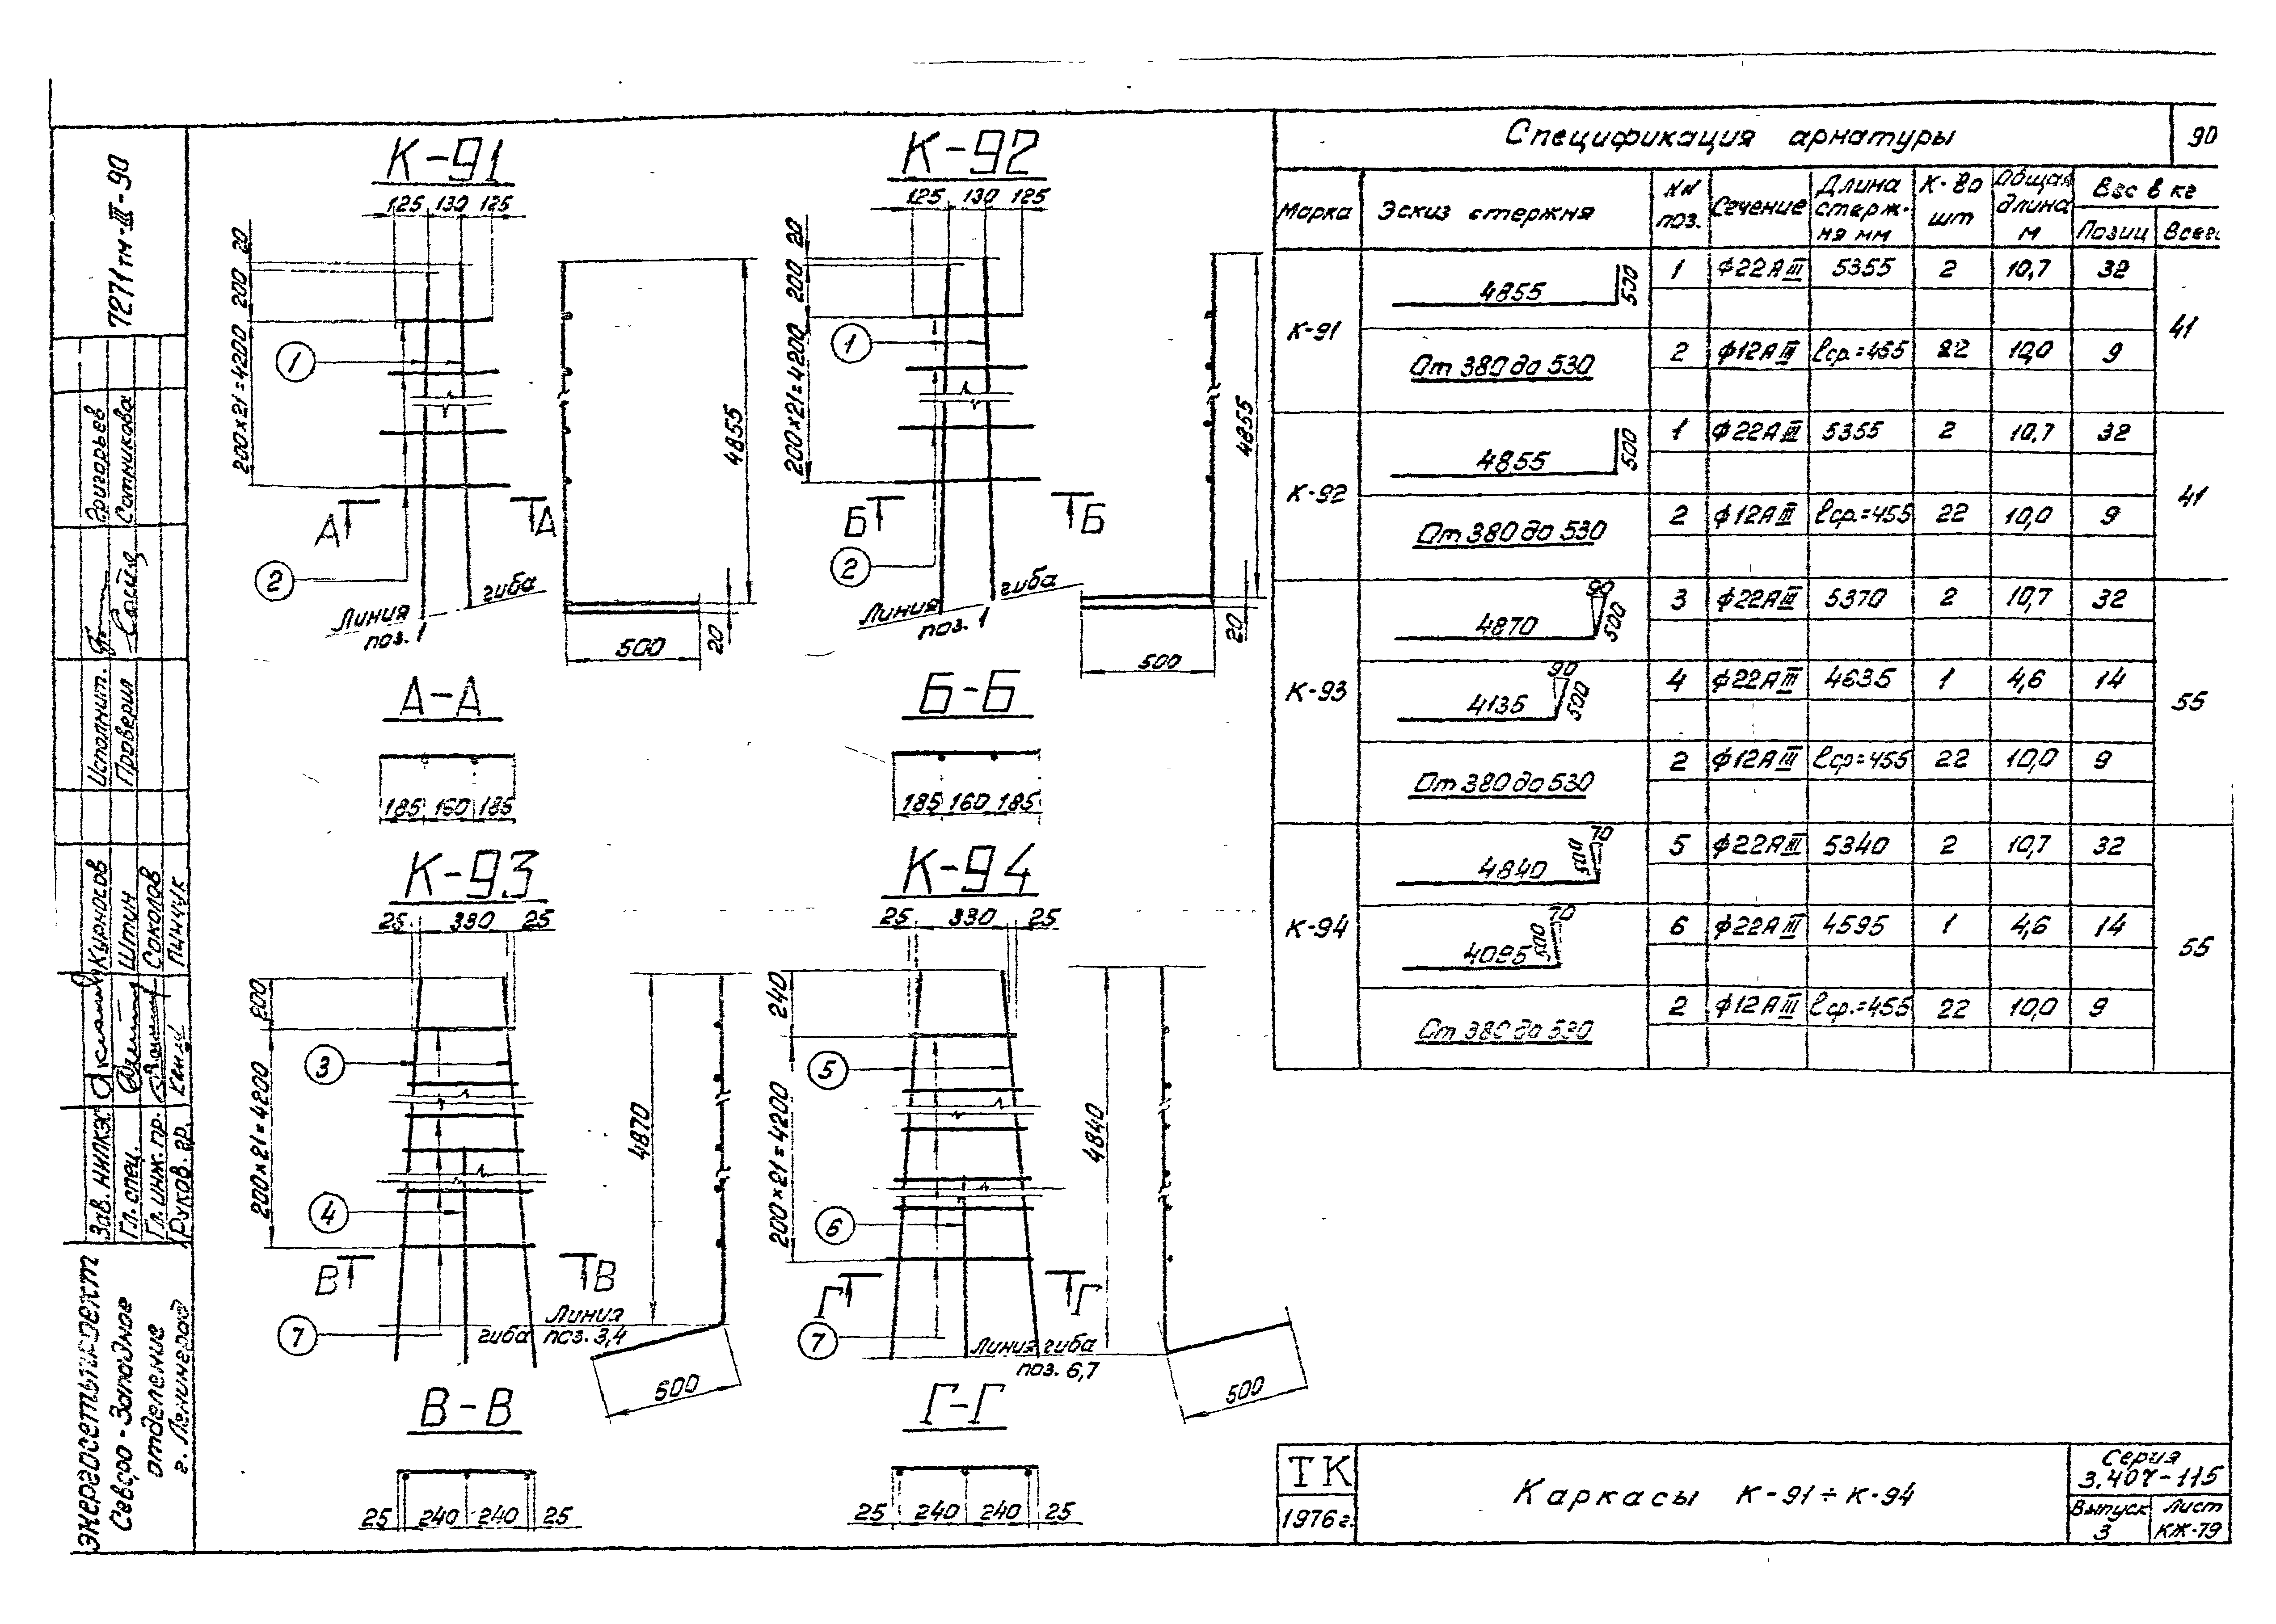 К-91
125 130 125
20
200
200×21=4200
1
2
А А
Линия гиба
поз. 1
4855
20
500
А-А
185 160 185
К-92
125 130 125
20
200
200×21=4200
1
2
Б Б
Линия гиба
поз. 1
4855
20
500
Б-Б
185 160 185
К-93
25 330 25
200
200×21=4200
3
4
7
В В
Линия
гиба поз. 3,4
4870
500
В-В
25 240 240 25
К-94
25 330 25
240
200×21=4200
5
6
7
Г Г
Линия гиба
поз. 6,7
4840
500
Г-Г
25 240 240 25
Спецификация арматуры
90
Марка Эскиз стержня NN поз. Сечение Длина стержня мм К-во шт Общая длина м Вес в кг
Позиц Всего
К-91 4855 500 1 ф22АIII 5355 2 10,7 32 41
От 380 до 530 2 ф12АIII ℓср.=455 22 10,0 9
К-92 4855 500 1 ф22АIII 5355 2 10,7 32 41
От 380 до 530 2 ф12АIII ℓср.=455 22 10,0 9
К-93 4870 90 500 3 ф22АIII 5370 2 10,7 32 55
4135 90 500 4 ф22АIII 4635 1 4,6 14
От 380 до 530 2 ф12АIII ℓср=455 22 10,0 9
К-94 4840 500 70 5 ф22АIII 5340 2 10,7 32 55
4095 500 70 6 ф22АIII 4595 1 4,6 14
От 380 до 530 2 ф12АIII ℓср.=455 22 10,0 9
ТК
1976г.
Каркасы К-91÷К-94
Серия
3.407-115
Выпуск
3
Лист
КЖ-79
7271тм-III-90
Исполнит. Григорьев
Проверил Сотникова
Зав. НИЛКЭС Курносов
Гл. спец. Штин
Гл. инж. пр. Соколов
Руков. гр. Пинчук
Энергосетьпроект
Северо-Западное
отделение
г. Ленинград